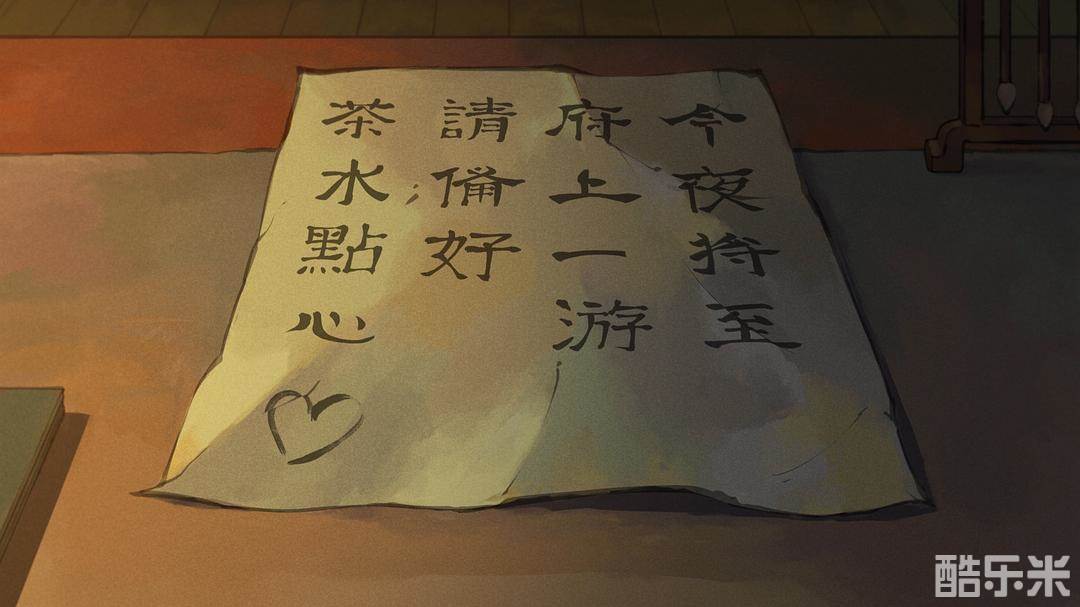 今夜将至
府上一游
請備好
茶水點心
酷乐米